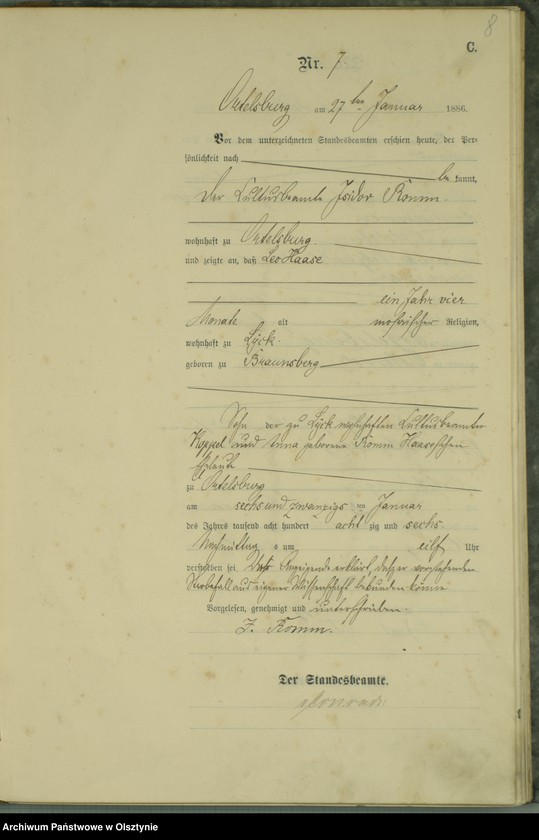 8
C.
Nr. 7
Ortelsburg am 27ten Januar 1886.
Vor dem unterzeichneten Standesbeamten erschien heute, der Per-
sönlichkeit nach
be kannt,
der Cultusbeamte Isidor Komm
wohnhaft zu Ortelsburg
und zeigte an, daß Leo Haase
ein Jahr vier
Monate alt mosaischer Religion,
wohnhaft zu Lyck
geboren zu Braunsberg
Sohn der zu Lyck wohnhaften Cultusbeamter
Koppel und Anna geborene Komm Haaseschen
Eheleute
zu Ortelsburg
am sechsundzwanzigsten Januar
des Jahres tausend acht hundert acht zig und sechs
Nachmittag s um eilf Uhr
verstorben sei. Der Anzeigende erklärt, daß er vorstehenden
Sterbefall aus eigener Wissenschaft bekunden könne
Vorgelesen, genehmigt und unterschrieben.
I. Komm.
Der Standesbeamte.
Archiwum Państwowe w Olsztynie